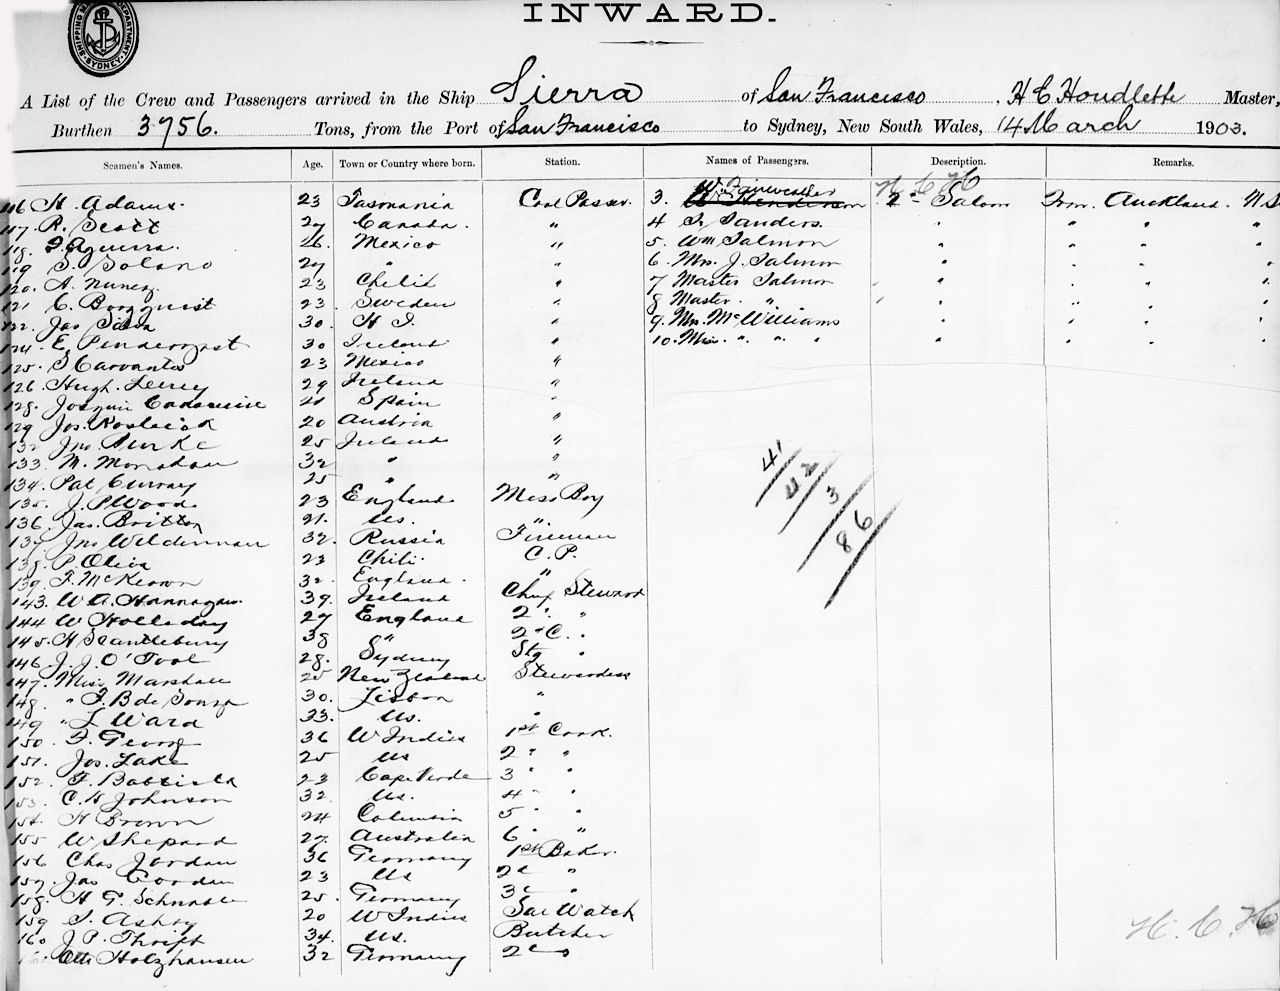 INWARD.
SHIPPING DEPARTMENT SYDNEY
A List of the Crew and Passengers arrived in the Ship Sierra of San Francisco, H C Houdlette Master,
Burthen 3756. Tons, from the Port of San Francisco to Sydney, New South Wales, 14 March 1903.
Seamen's Names. Age. Town or Country where born. Station. Names of Passengers. Description. Remarks.
H C H
116 H. Adams. 23 Tasmania Coal Passer. 3. W. 2" Saloon From Auckland. N.S
117. R. Scott 27 Canada. " 4 Sanders. " " " "
118. Aguirra. 26. Mexico " 5. Wm Salmon " " " "
119 S. Solano 27 " " 6. Mrs. J. Salmon " " " "
120. A. Nunez. 23 Chili " 7 Master Salmon " " " "
121 C. Borgquist 23. Sweden " 8 Master. " " " " "
122. Jas Silva 30. H I. " 9. Mrs. McWilliams " " " "
124. E. Pendergast 30 Ireland " 10. Miss. " " " " " " "
125. S Carvantes 23 Mexico "
126. Hugh. 29 Ireland "
128. Spain "
129 Jos. 20 Austria "
132 Jno. Burke 25 Ireland "
133. M. Monahan 32 " "
134. Pat Curray 25 " "
135. J. P Wood 23 England Mess Boy
136. Jas. Britton 21. US. "
137 Jno Wilderman 32. Russia Fireman
138. P. Oliva 23 Chili. C. P.
139. F. McKeown 32. England. "
143. W A. Hannagan. 39. Ireland Chief Steward
144 W Holladay 27 England 2" "
145. H Scantlebury 38 " 2d C. "
146 J. J. O'Tool 28. Sydney Stg "
147. Miss Marshall 25 New Zealand Stewardess
148. " F. B de Souza 30. Lisbon "
149 " L Ward 33. US. "
150. F. George 36 W Indies 1st Cook.
151. Jos. Lake 25 US 2 " "
152. F. Battista 23 Cape Verde 3 " "
153. C. H Johnson 32. US. 4 " "
154. H Brown 24 Columbia 5 " "
155 W Shepard 27. Australia 6 " "
156 Chas Jordan 36 Germany 1st Baker.
157. Jas Gordan 23 US 2d "
158. H G. Schnabel 25. Germany 3d "
159 S. Ashby 20 W Indies Sal Watch
160 J P. Thrift 34. US. Butcher
Otto Holzhausen 32 Germany 2d "
41
42
3
86
H. C. H